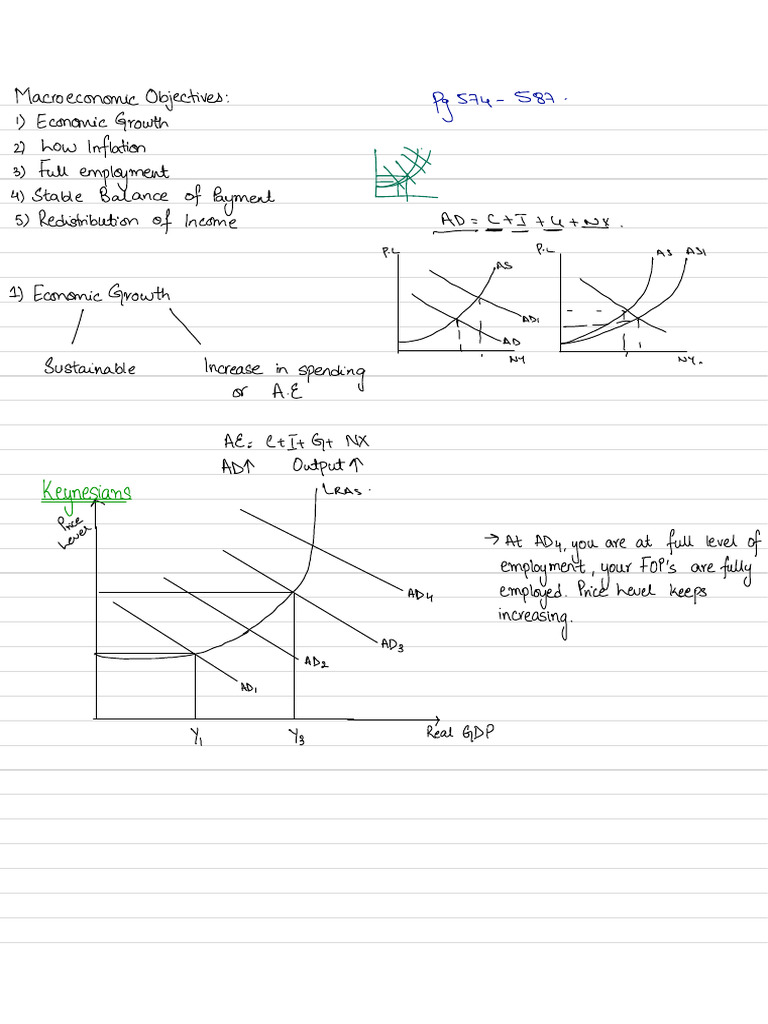 Macroeconomic Objectives:
Pg 574 - 587.
1) Economic Growth
2) Low Inflation
3) Full employment
4) Stable Balance of Payment
5) Redistribution of Income
AD = C + I + G + NX.
P.L
AS
AD1
AD
NY
P.L
AS AS1
NY.
1) Economic Growth
Sustainable
Increase in spending
or A.E
AE = C + I + G + NX
AD↑ Output ↑
Keynesians
Price
Level
LRAS.
AD4
AD3
AD2
AD1
Y1
Y3
Real GDP
→ At AD4, you are at full level of
employment, your FOP's are fully
employed. Price Level keeps
increasing.